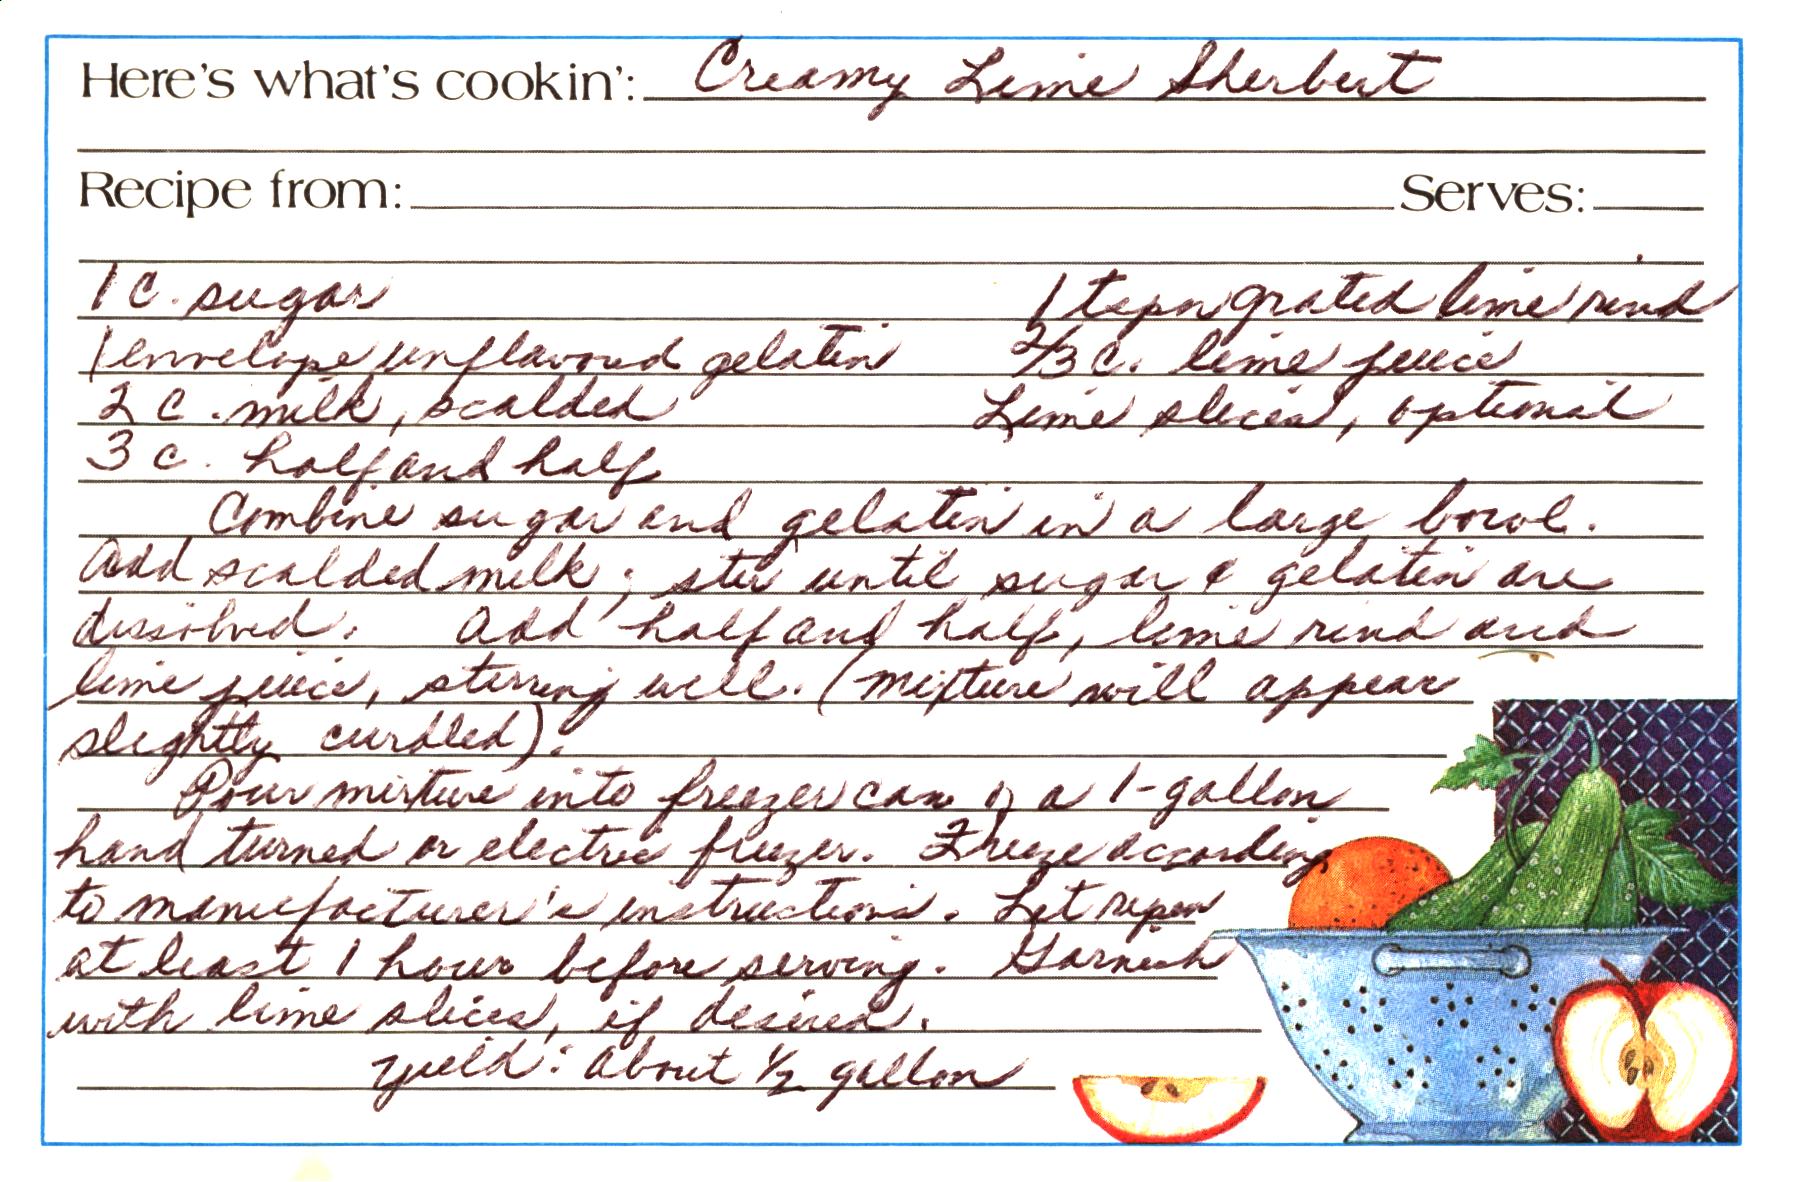 Here's what's cookin': Creamy Lime Sherbert
Recipe from: Serves:
1 c. sugar 1 tspn grated lime rind
1 envelope unflavored gelatin 2/3 c. lime juice
2 c. milk, scalded Lime slices, optional
3 c. half and half
Combine sugar and gelatin in a large bowl.
Add scalded milk; stir until sugar & gelatin are
dissolved. Add half and half, lime rind and
lime juice, stirring well. (mixture will appear
slightly curdled).
Pour mixture into freezer can of a 1-gallon
hand turned or electric freezer. Freeze according
to manufacturer's instructions. Let ripen
at least 1 hour before serving. Garnish
with lime slices, if desired.
Yield: About 1/2 gallon